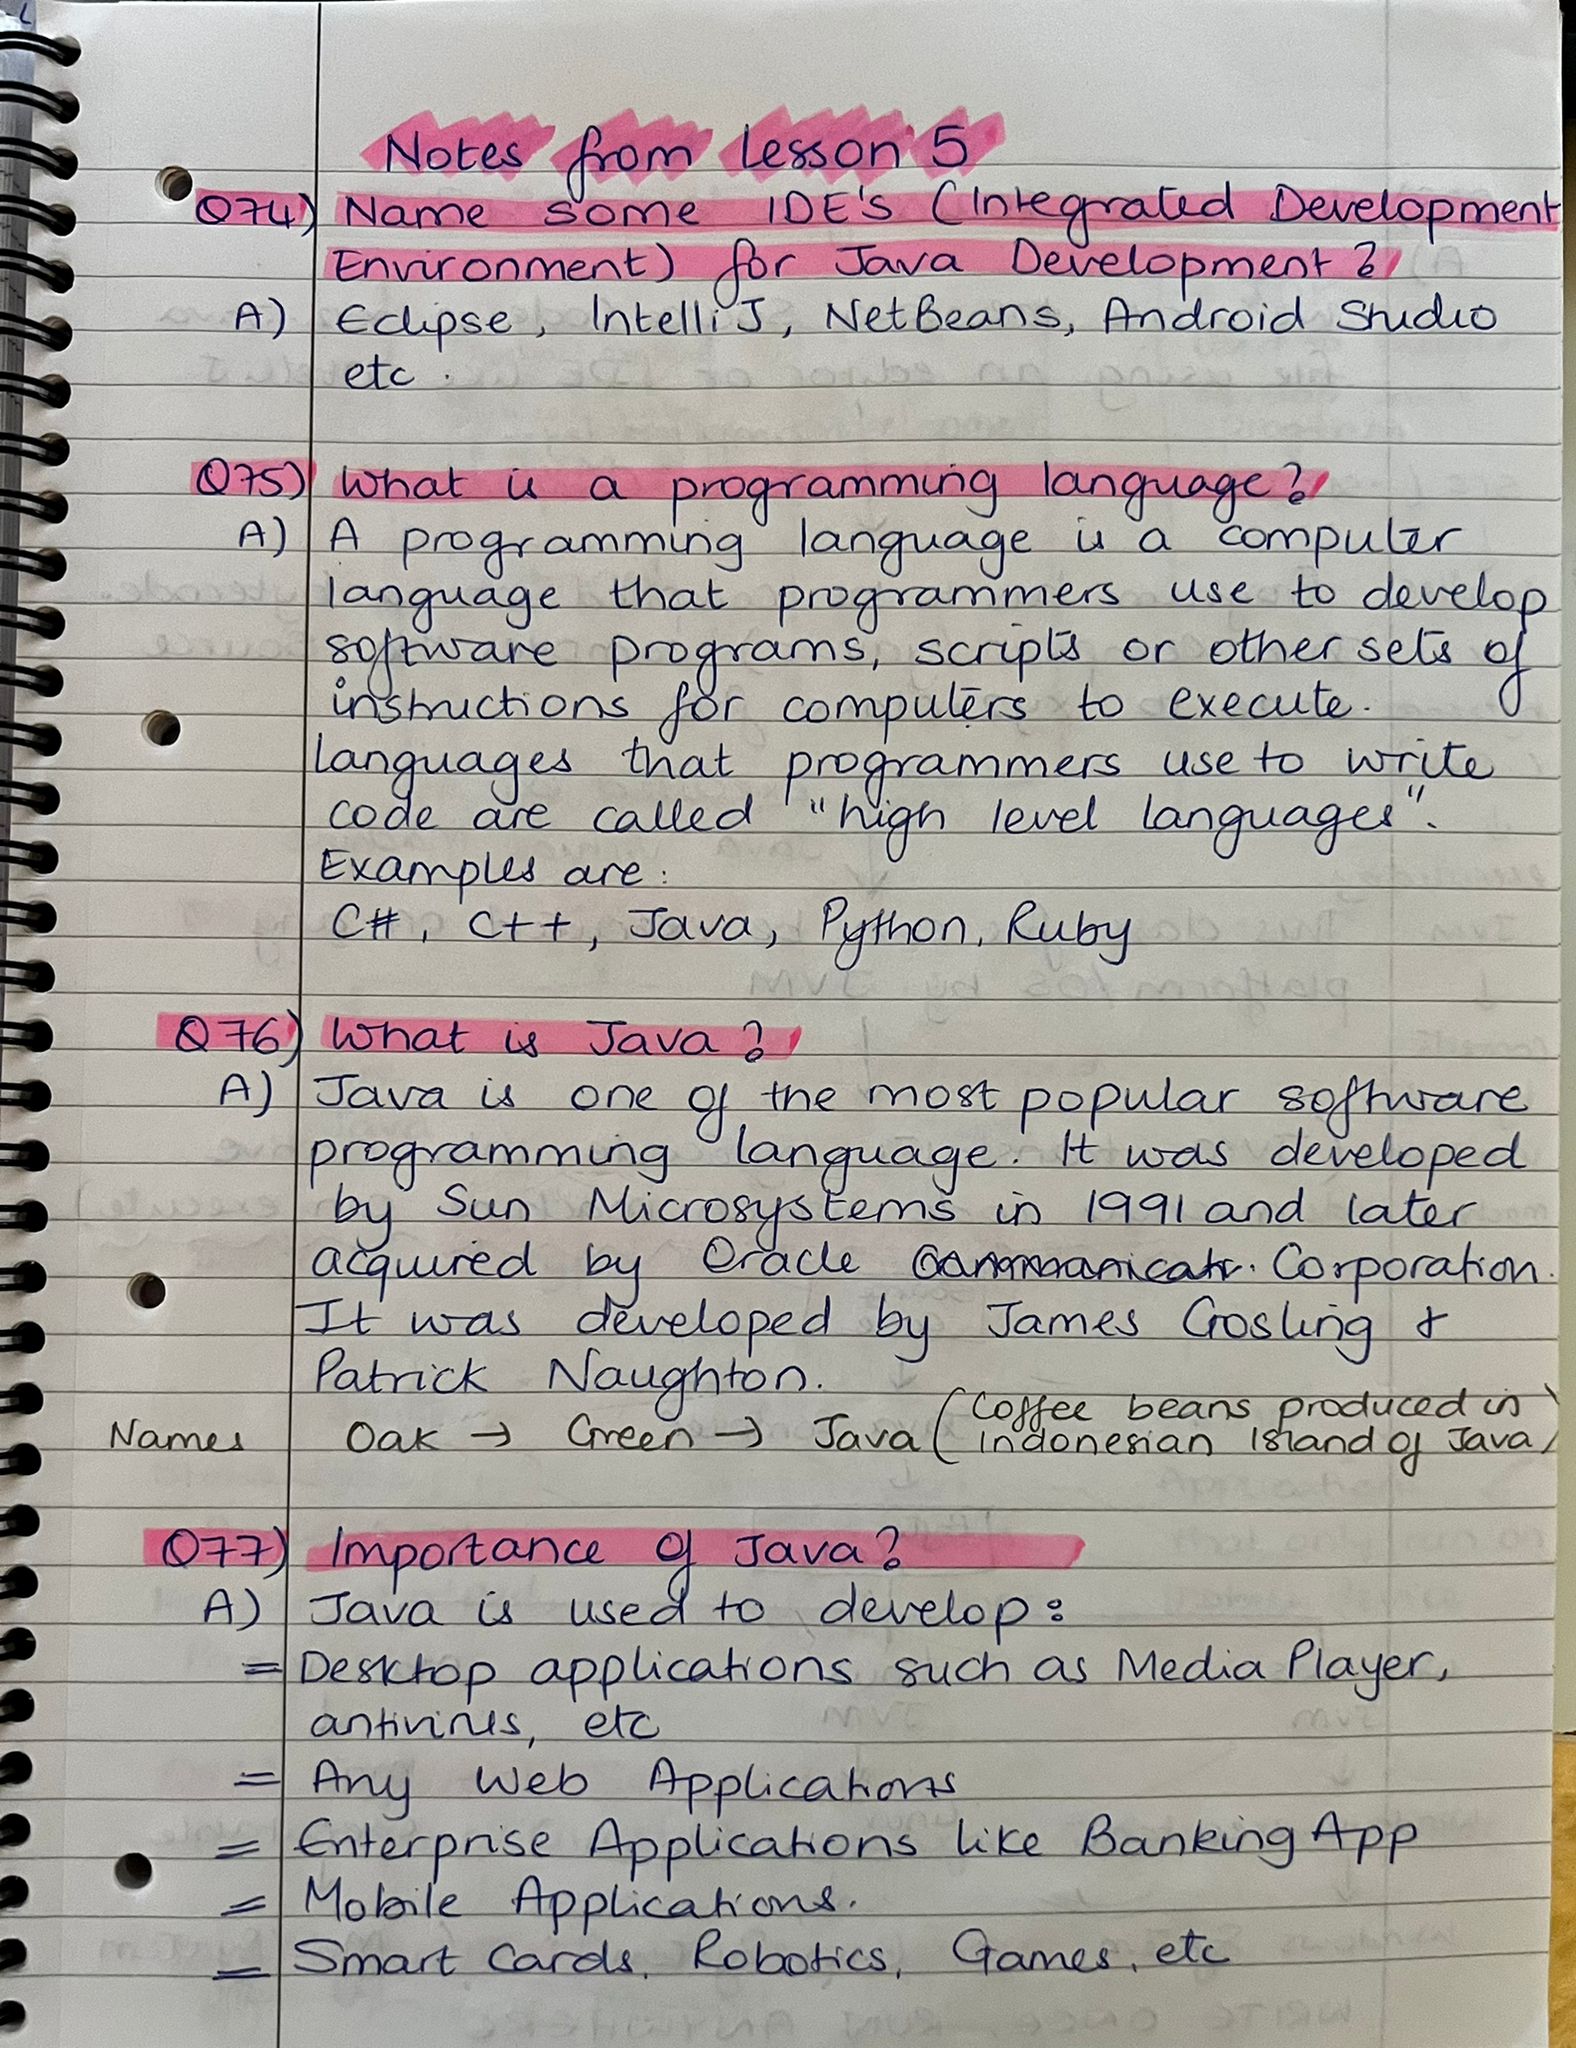 Notes from Lesson 5
Q74) Name some IDE's (Integrated Development
Environment) for Java Development?
A) Eclipse, IntelliJ, NetBeans, Android Studio
etc.
Q75) What is a programming language?
A) A programming language is a computer
language that programmers use to develop
software programs, scripts or other sets of
instructions for computers to execute.
Languages that programmers use to write
code are called "high level languages".
Examples are:
C#, C++, Java, Python, Ruby
Q76) What is Java?
A) Java is one of the most popular software
programming language. It was developed
by Sun Microsystems in 1991 and later
acquired by Oracle Corporation.
It was developed by James Gosling &
Patrick Naughton.
Names Oak → Green → Java (Coffee beans produced in
Indonesian Island of Java)
Q77) Importance of Java?
A) Java is used to develop:
= Desktop applications such as Media Player,
antivirus, etc
= Any Web Applications
= Enterprise Applications like Banking App
= Mobile Applications.
= Smart Cards, Robotics, Games, etc